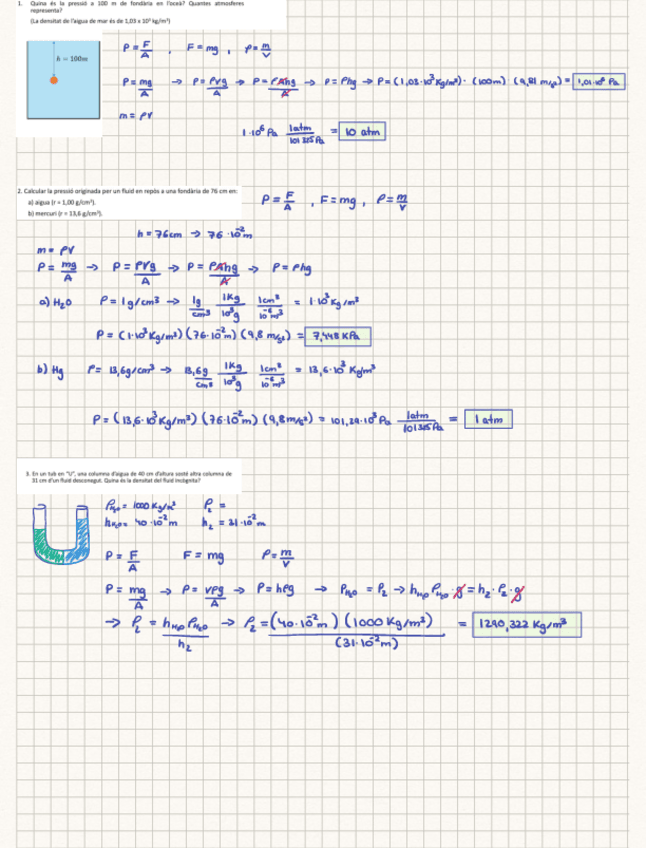 1. Quina és la pressió a 100 m de fondària en l'oceà? Quantes atmosferes
representa?
(La densitat de l'aigua de mar és de 1,03 x 10³ kg/m³)
h = 100m
P = F/A , F = mg , ρ = m/V
P = mg/A → P = ρVg/A → P = ρAhg/A → P = ρhg → P = (1,03·10³ Kg/m³) · (100m) (9,81 m/s²) = 1,01·10⁶ Pa
m = ρV
1·10⁶ Pa 1atm/101325 Pa = 10 atm
2. Calcular la pressió originada per un fluid en repòs a una fondària de 76 cm en:
a) aigua (r = 1,00 g/cm³).
b) mercuri (r = 13,6 g/cm³).
P = F/A , F = mg , ρ = m/V
h = 76cm → 76·10⁻² m
m = ρV
P = mg/A → P = ρVg/A → P = ρAhg/A → P = ρhg
a) H₂O ρ = 1g/cm³ → 1g/cm³ 1Kg/10³g 1cm³/10⁻⁶m³ = 1·10³ Kg/m³
P = (1·10³ Kg/m³) (76·10⁻² m) (9,8 m/s²) = 7,448 KPa
b) Hg ρ = 13,6g/cm³ → 13,6g/cm³ 1Kg/10³g 1cm³/10⁻⁶m³ = 13,6·10³ Kg/m³
P = (13,6·10³ Kg/m³) (76·10⁻² m) (9,8 m/s²) = 101,29·10³ Pa 1atm/101325 Pa = 1 atm
3. En un tub en "U", una columna d'aigua de 40 cm d'altura sosté altra columna de
31 cm d'un fluid desconegut. Quina és la densitat del fluid incògnita?
ρH₂O = 1000 Kg/m³ ρ₂ =
hH₂O = 40·10⁻² m h₂ = 31·10⁻² m
P = F/A F = mg ρ = m/V
P = mg/A → P = Vρg/A → P = hρg → PH₂O = P₂ → hH₂O ρH₂O · g = h₂ · ρ₂ · g
→ ρ₂ = hH₂O ρH₂O/h₂ → ρ₂ = (40·10⁻² m) (1000 Kg/m³)/(31·10⁻² m) = 1290,322 Kg/m³